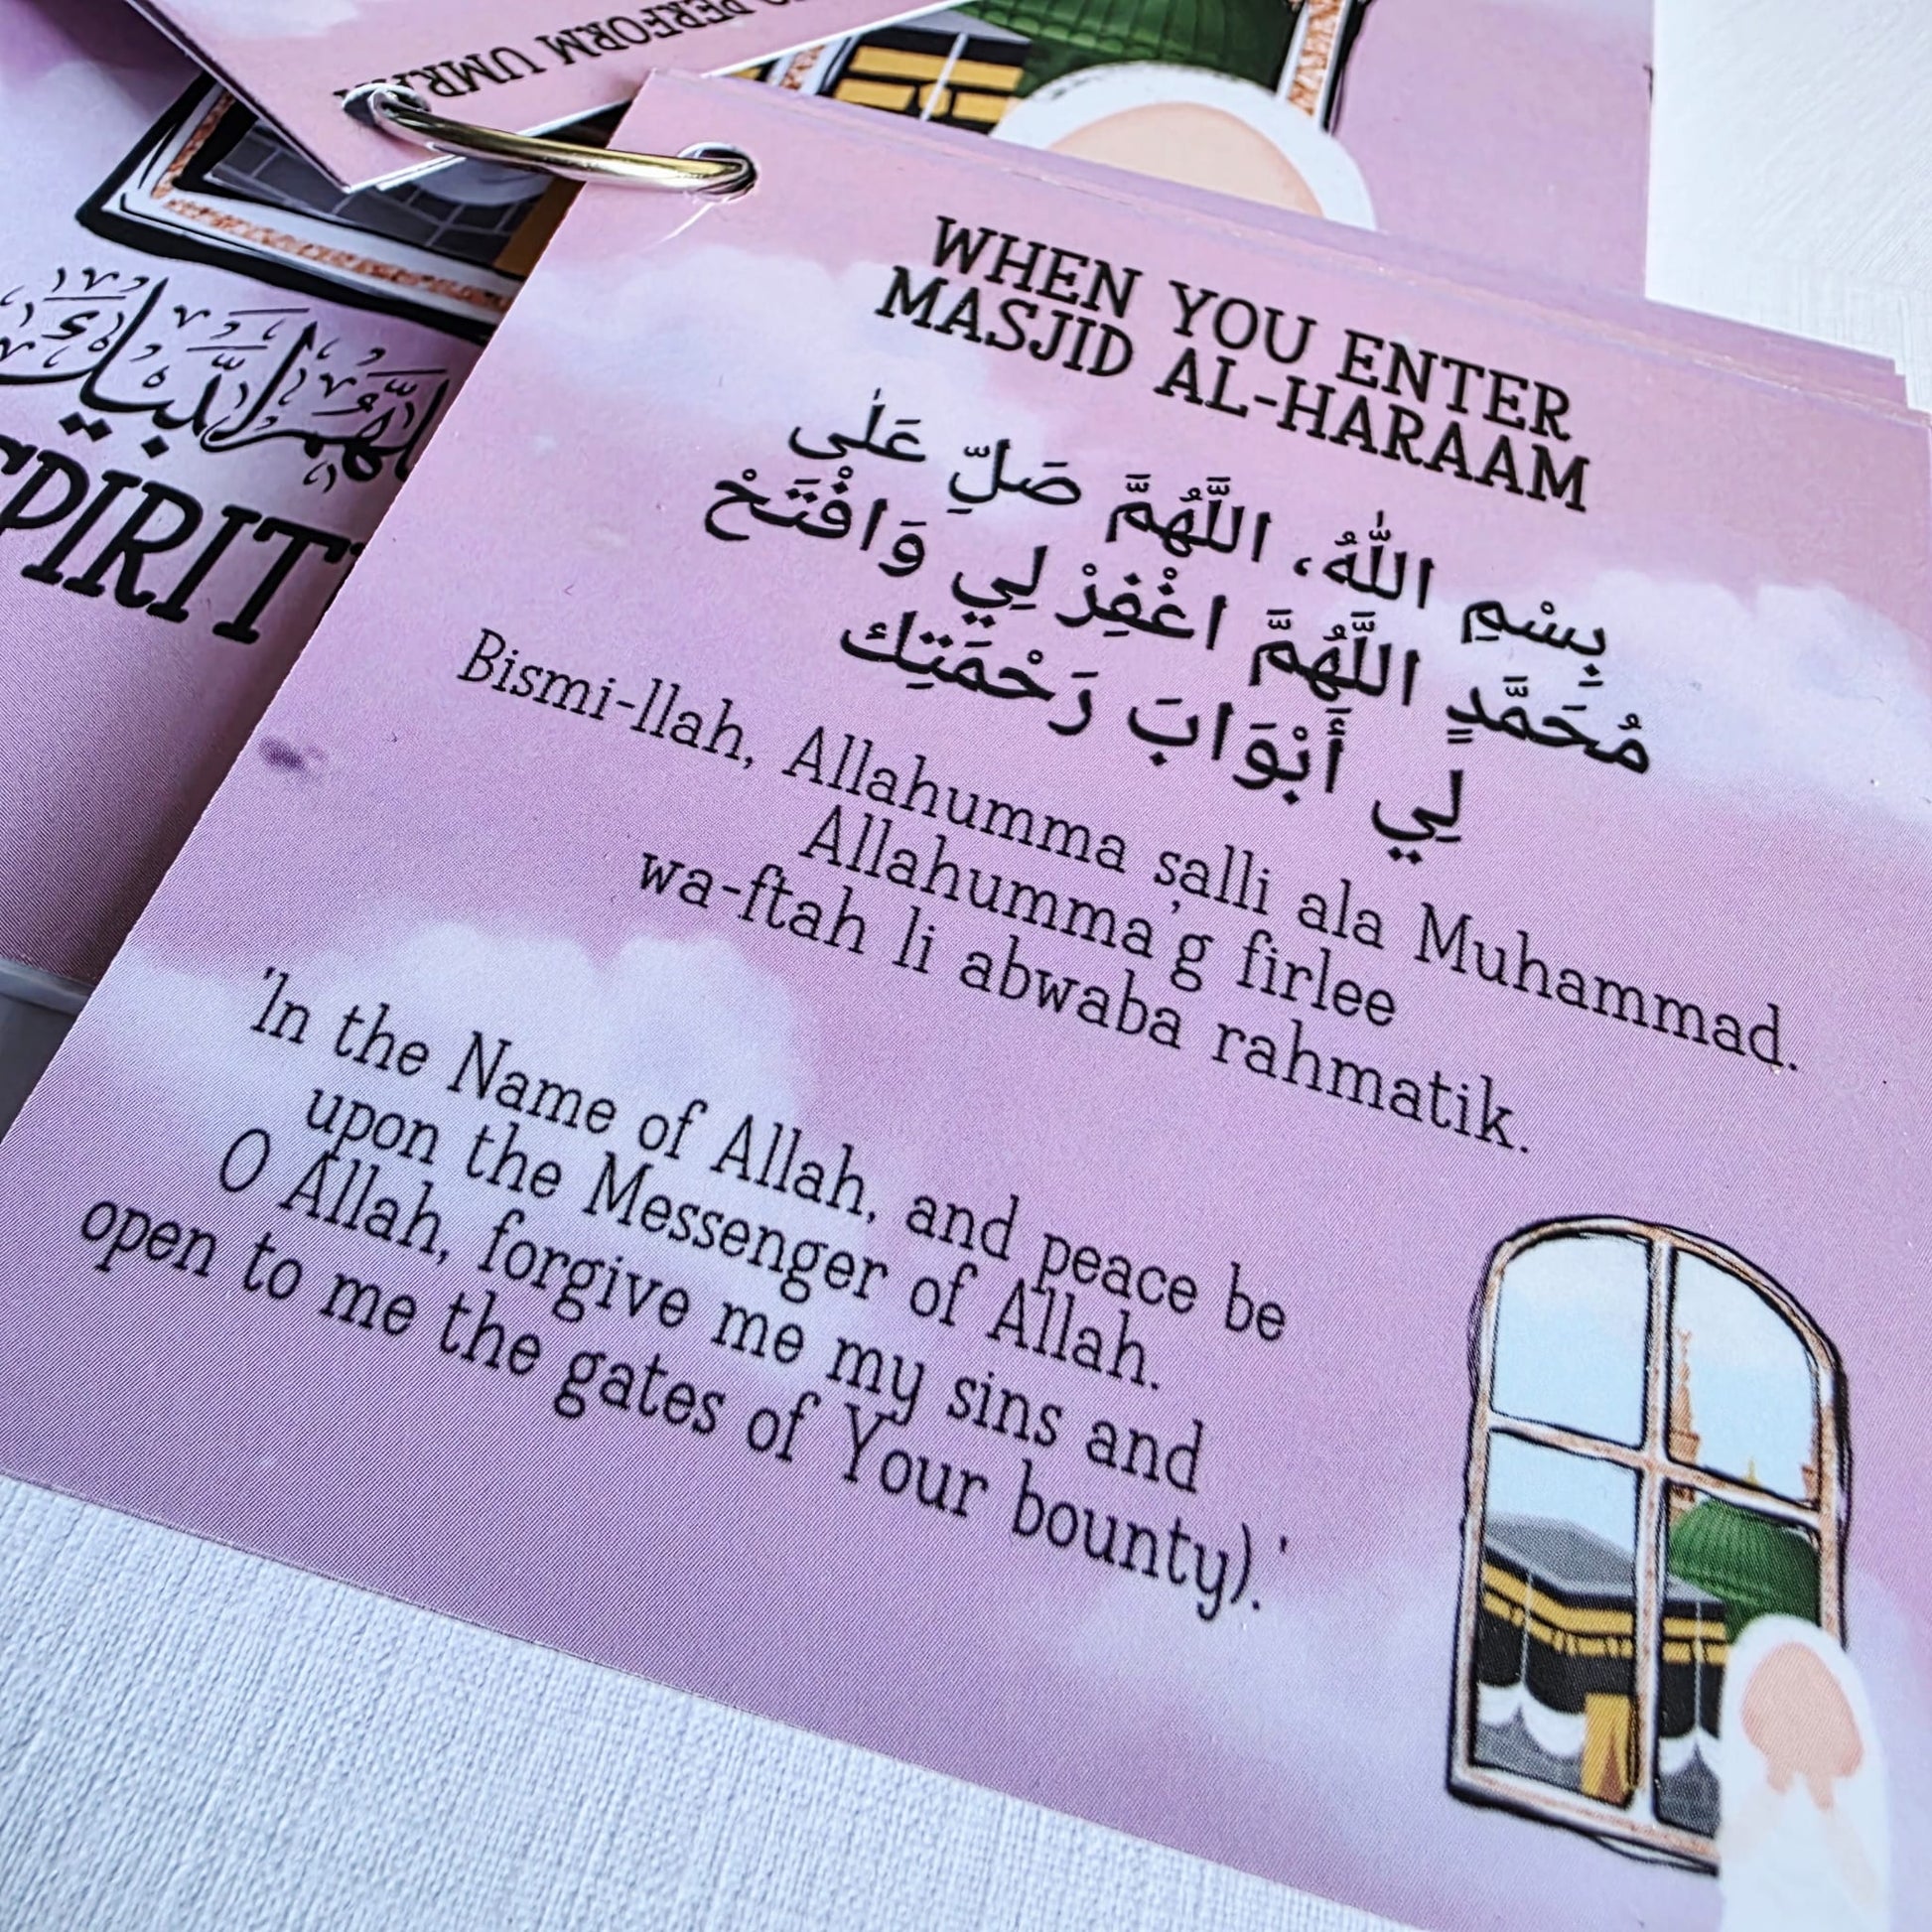 PERFORM
WHEN YOU ENTER
MASJID AL-HARAAM
بِسْمِ اللّٰهُ، اللَّهُمَّ صَلِّ عَلٰى
مُحَمَّدٍ اللَّهُمَّ اغْفِرْ لِي وَافْتَحْ
لِي أَبْوَابَ رَحْمَتِك
Bismi-llah, Allahumma ṣalli ala Muhammad.
Allahumma'g firlee
wa-ftah li abwaba rahmatik.
'In the Name of Allah, and peace be
upon the Messenger of Allah.
O Allah, forgive me my sins and
open to me the gates of Your bounty).'